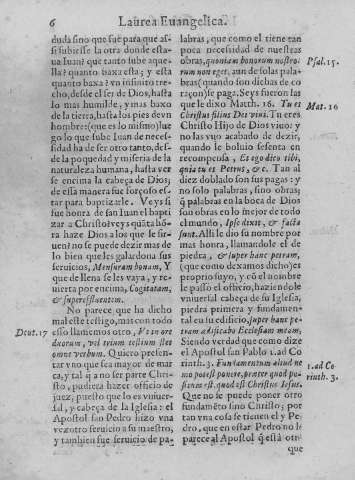 6 Laurea Euangelica.
duda sino que fue para que asi
si subiesse la otra donde esta-
ua Iuan? que tanto sube aque-
lla? quanto baxa esta; y esta
quanto baxa? vn infinito tre-
cho, desde el ser de Dios, hasta
lo mas humilde, y mas baxo
de la tierra, hasta los pies de vn
hombre (que es lo mismo) lue
go lo que sube Iuan de necessi-
dad ha de ser otro tanto, des-
de la poquedad y miseria de la
naturaleza humana, hasta ver
se encima la cabeça de Dios;
de esta manera fue forçoso es-
tar para baptizarle. Veys si
fue honra de san Iuan el bapti
zar a Christo? veys quāta hō-
ra haze Dios a los que le sir-
uen? no se puede dezir mas de
lo bien que les galardona sus
seruicios, Mensuram bonam, Y
que de llena se les vaya, y re-
uierta por encima, Cogitatam,
& supereffluentem.
No parece que ha dicho
mal este testigo, mas con todo
Deut. 17 esso llamemos otro, Vt in ore
duorum, vel trium testium stet
omne verbum. Quiero presen-
tar vno que sea mayor de mar
ca, y tal q̃ a no ser parte Chri-
sto, pudiera hazer officio de
juez; puesto que lo es vniuer-
sal, y cabeça de la Iglesia: el
Apostol san Pedro hizo vna
vez otro seruicio a su maestro,
y tambien fue seruicio de pa-
labras, que como el tiene tan
poca necesidad de nuestras
obras, quoniam bonorum nostro- Psal. 15.
rum non eges, aun de solas pala-
bras (quando son dichas de co
raçon) se paga. Seys fueron las
que le dixo Matth. 16. Tu es Mat. 16
Christus filius Dei viui. Tu eres
Christo Hijo de Dios viuo: y
no las vuo acabado de dezir,
quando le boluio sesenta en
recompensa, Et ego dico tibi,
quia tu es Petrus, &c. Tan al
diez doblado son sus pagas: y
no solo palabras, sino obras;
q̃ palabras en la boca de Dios
son obras en lo mejor de todo
el mundo, Ipse dixit, & facta
sunt. Alli le dio su nombre por
mas honra, llamandole el de
piedra, & super hanc petram,
(que como dexamos dicho) es
proprio suyo, y cō el nombre
le passó el officio, haziendole
vniuersal cabeça de su Iglesia,
piedra primera y fundamen-
tal en su edificio, super hanc pe-
tram ædificabo Ecclesiam meam,
Siendo verdad que como dize
el Apostol san Pablo 1. ad Co 1. ad Co
rinth. 3. Fundamentum aliud ne rinth. 3.
mo potest ponere, præter quod po-
situm est, quod est Christus Iesus.
Que no se puede poner otro
fundamēto sino Christo; por
tan vna cosa se tienen el y Pe-
dro, que en estar Pedro no le
parece al Apostol q̃ està otro
que